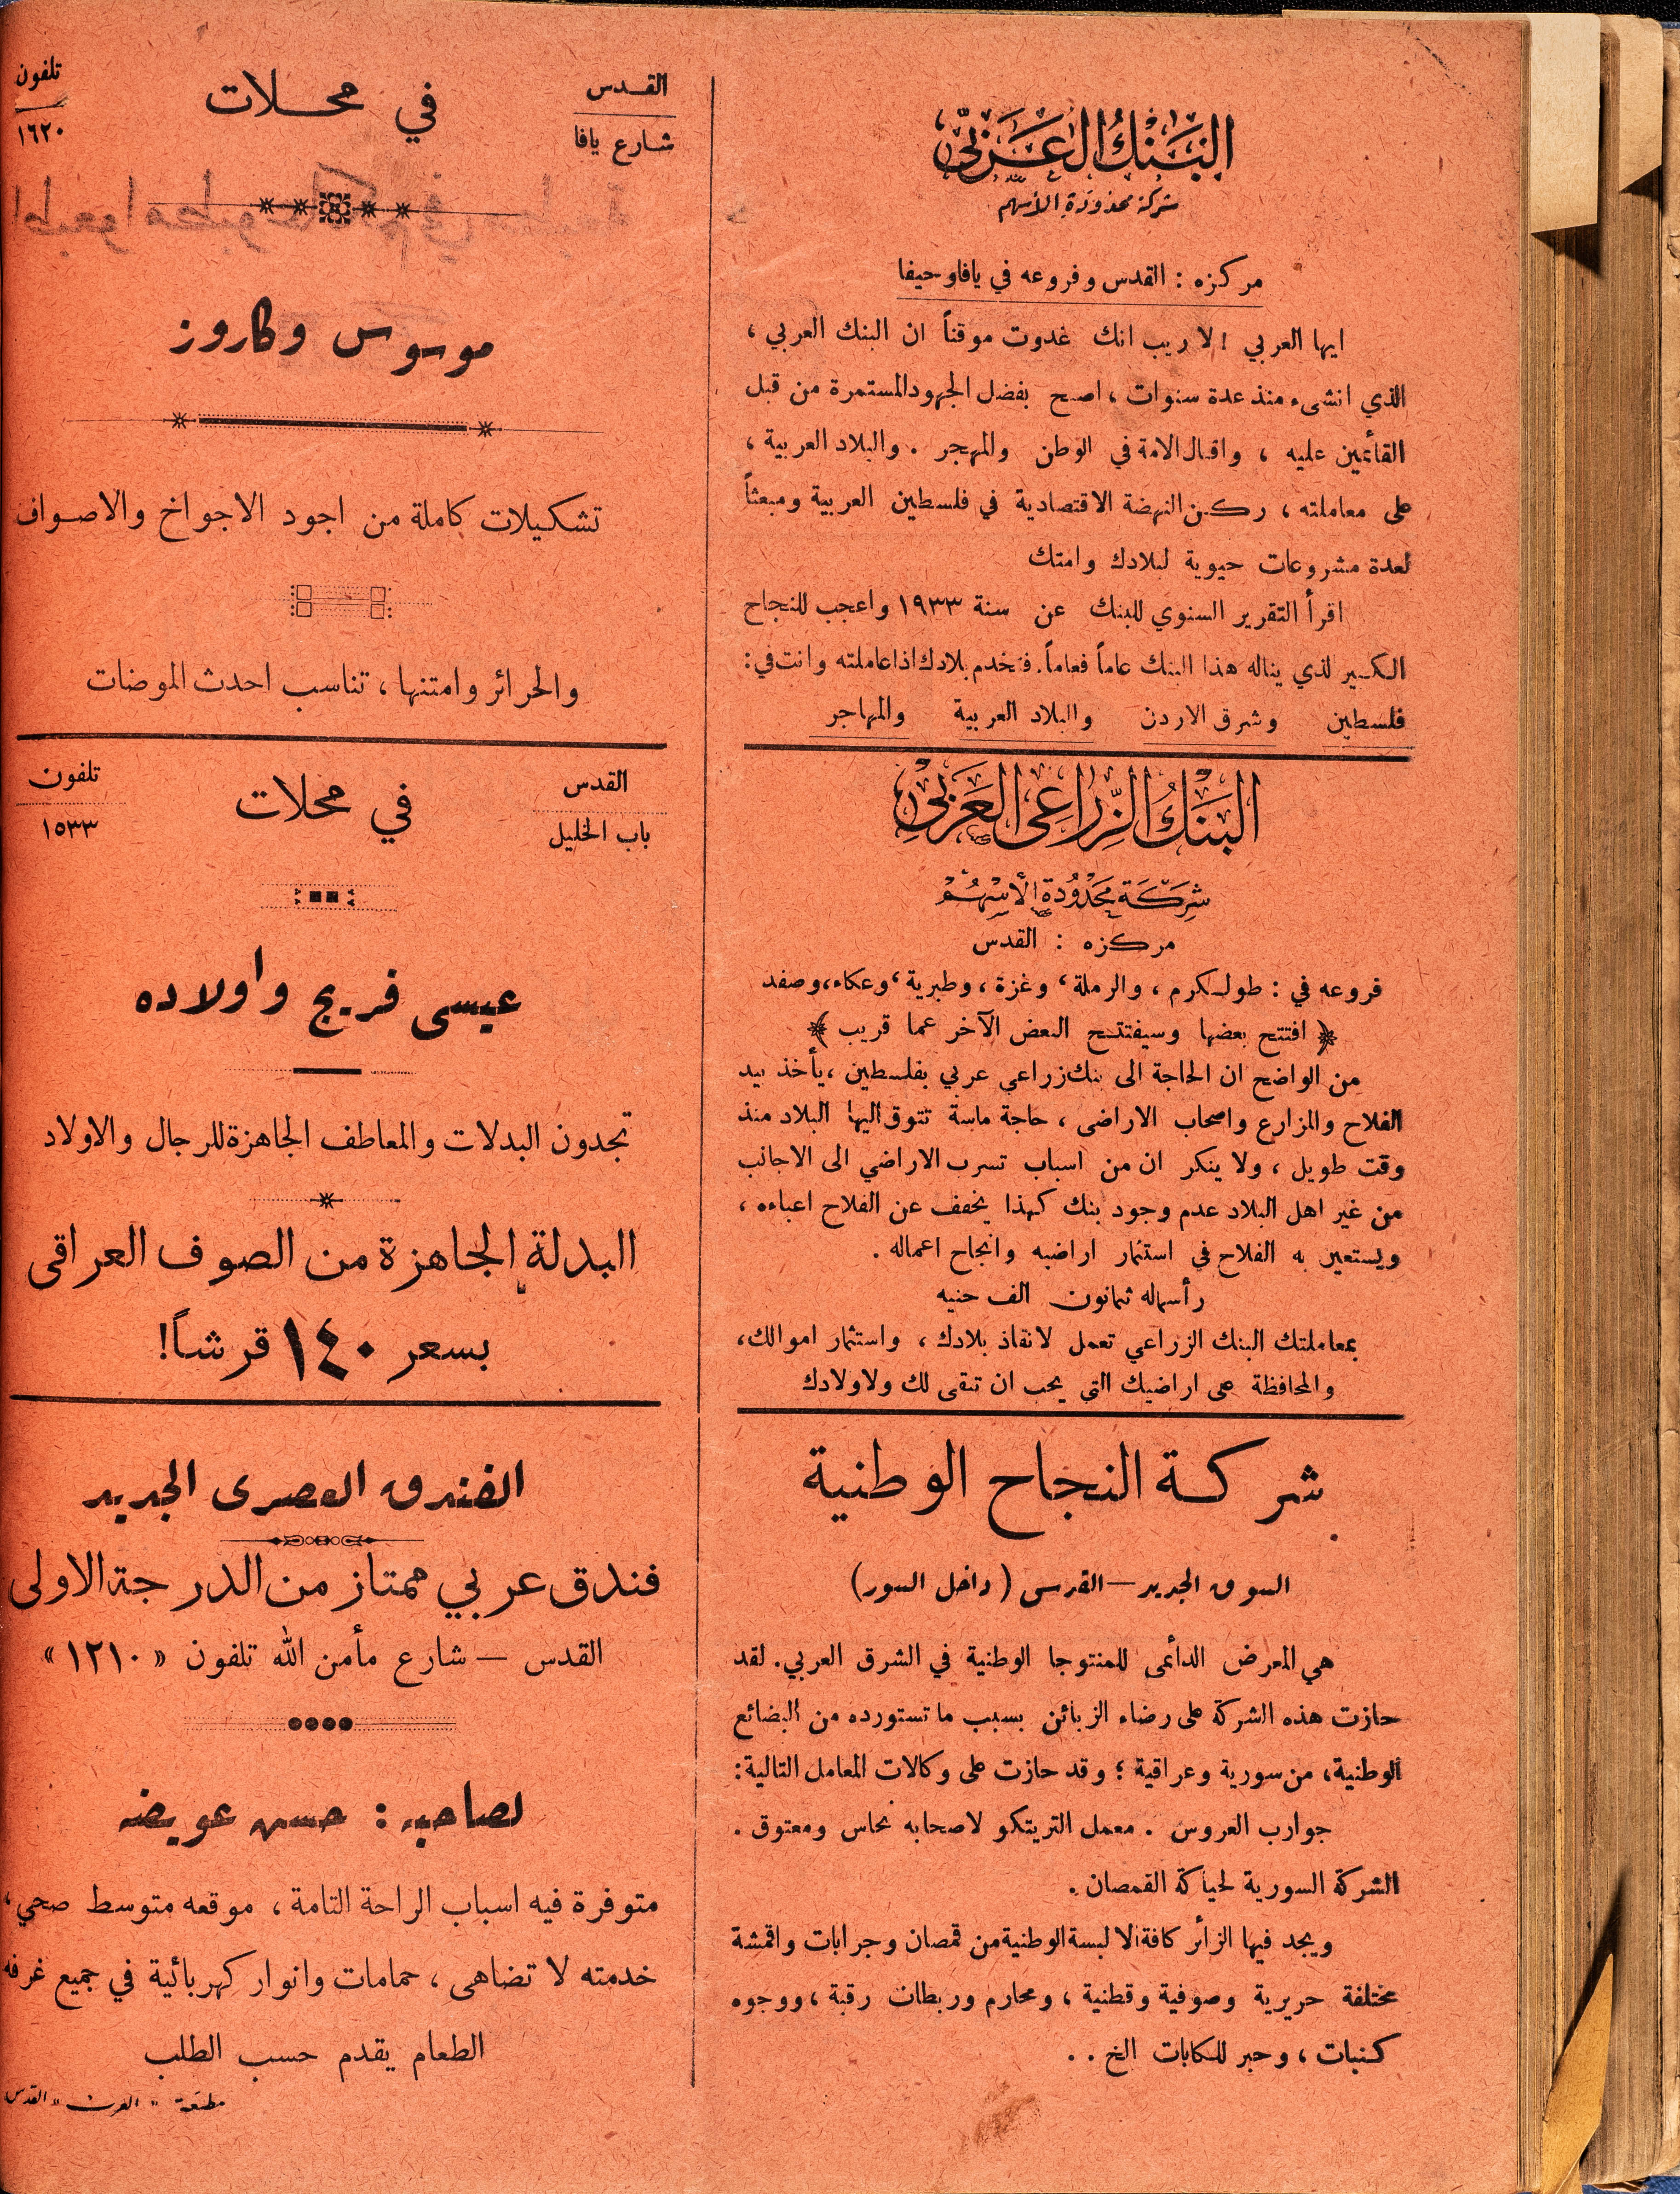 البنك العربي
شركة محدودة الأسهم
مركزه : القدس وفروعه في يافا وحيفا
ايها العربي ! لا ريب انك غدوت موقناً ان البنك العربي ،
الذي انشىء منذ عدة سنوات ، اصبح بفضل الجهود المستمرة من قبل
القائمين عليه ، واقبال الامة في الوطن والمهجر . والبلاد العربية ،
على معاملته ، ركن النهضة الاقتصادية في فلسطين العربية ومبعثاً
لعدة مشروعات حيوية لبلادك وامتك
اقرأ التقرير السنوي للبنك عن سنة ١٩٣٣ واعجب للنجاح
الكبير لذي يناله هذا البنك عاماً فعاماً. فتخدم بلادك اذا عاملته وانت في :
فلسطين وشرق الاردن والبلاد العربية والمهاجر
البنك الزراعي العربي
شركة محدودة الأسهم
مركزه : القدس
فروعه في : طولكرم ، والرملة ، وغزة ، وطبرية ، وعكاء ، وصفد
﴿ افتتح بعضها وسيفتتح البعض الآخر عما قريب ﴾
من الواضح ان الحاجة الى بنك زراعي عربي بفلسطين ، يأخذ بيد
الفلاح والمزارع واصحاب الاراضى ، حاجة ماسة تتوق اليها البلاد منذ
وقت طويل ، ولا ينكر ان من اسباب تسرب الاراضي الى الاجانب
من غير اهل البلاد عدم وجود بنك كهذا يخفف عن الفلاح اعباءه ،
ويستعين به الفلاح في استثمار اراضيه وانجاح اعماله .
رأسماله ثمانون الف جنيه
بمعاملتك البنك الزراعي تعمل لانقاذ بلادك ، واستثمار اموالك ،
والمحافظة على اراضيك التي يجب ان تبقى لك ولاولادك
شركة النجاح الوطنية
السوق الجديد — القدس ( داخل السور )
هي المعرض الدائمى للمنتوجا الوطنية في الشرق العربي . لقد
حازت هذه الشركة على رضاء الزبائن بسبب ما تستورده من البضائع
الوطنية ، من سورية وعراقية ؛ وقد حازت على وكالات المعامل التالية :
جوارب العروس . معمل التريتكو لاصحابه نحاس ومعتوق .
الشركة السورية لحياكة القمصان .
ويجد فيها الزائر كافة الالبسة الوطنية من قمصان وجرابات واقمشة
مختلفة حريرية وصوفية وقطنية ، ومحارم وربطات رقبة ، ووجوه
كنبات ، وحبر للكتابات الخ . .
القدس
شارع يافا
في محلات
تلفون
١٦٢٠
موسوس وكاروز
تشكيلات كاملة من اجود الاجواخ والاصواف
والحرائر وامتنها ، تناسب احدث الموضات
القدس
باب الخليل
في محلات
تلفون
١٥٣٣
عيسى فريج واولاده
تجدون البدلات والمعاطف الجاهزة للرجال والاولاد
البدلة الجاهزة من الصوف العراقى
بسعر ١٤٠ قرشاً!
الفندق العصرى الجديد
فندق عربي ممتاز من الدرجة الاولى
القدس — شارع مأمن الله تلفون « ١٢١٠ »
لصاحبه : حسن عويضه
متوفرة فيه اسباب الراحة التامة ، موقعه متوسط صحي ،
خدمته لا تضاهى ، حمامات وانوار كهربائية في جميع غرفه
الطعام يقدم حسب الطلب
مطبعة « العرب » القدس